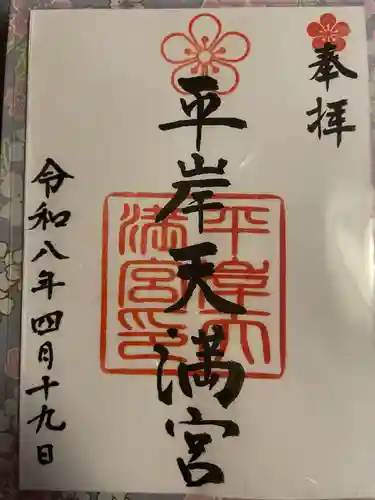 奉拝
平岸天満宮
平岸天
満宮印
令和八年四月十九日